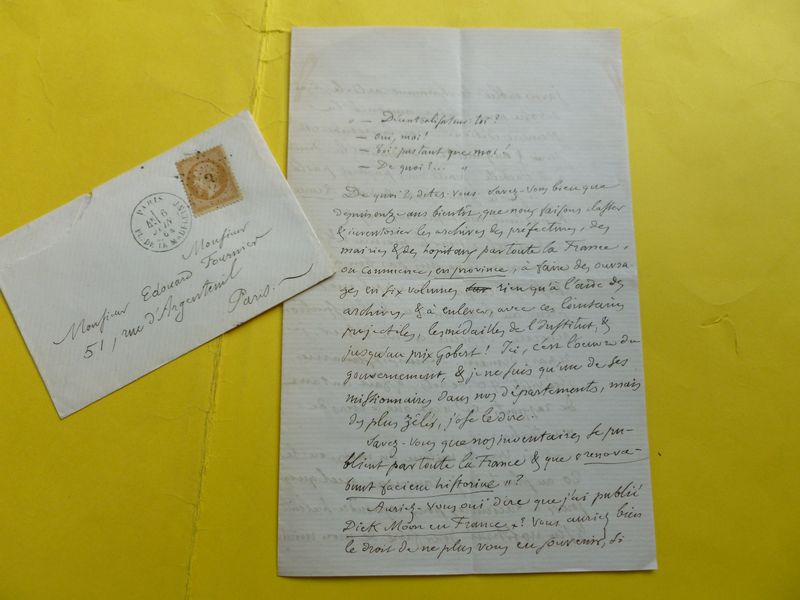 PARIS
6
JUIN
64
PL. DE LA MADELEINE
Monsieur
Monsieur Edouard Fournier
51, rue d'Argenteuil
Paris.
" — Décentralisateur toi ?
— Oui, moi !
— Toi ! pas tant que moi !
— De quoi ?... "
De quoi ?, dites-vous. Savez-vous bien que
depuis onze ans bientôt, que nous faisons classer
& inventorier les archives des préfectures, des
mairies & des hopitaux par toute la France,
on commence, en province, à faire des ouvra-
ges en six volumes rien qu'à l'aide des
archives, & à enlever, avec ces lointains
projectiles, les médailles de l'Institut, &
jusqu'au prix Gobert ! Ici, c'est l'œuvre du
gouvernement, & je ne suis qu'un de ses
missionnaires dans nos départements, mais
des plus zélés, j'ose le dire.
Savez-vous que nos inventaires se pu-
blient par toute la France & que « renova-
bunt faciem historiæ » ?
Auriez-vous ouï dire que j'ai publié
Dick Moon en France ? Vous auriez bien
le droit de ne plus vous en souvenir, si